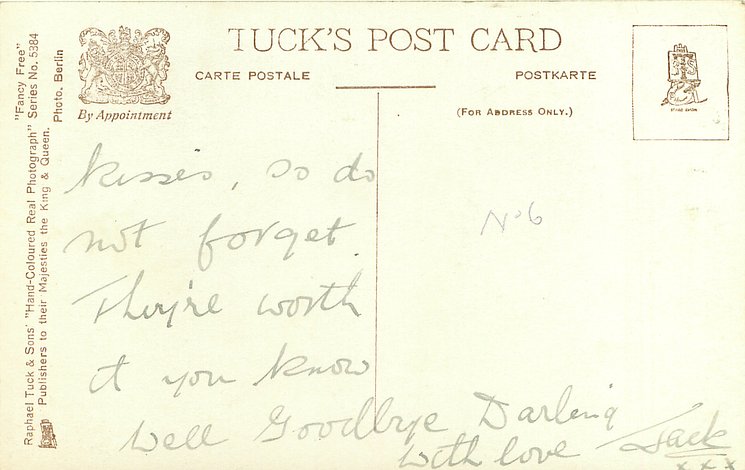 TUCK'S POST CARD
CARTE POSTALE
POSTKARTE
(FOR ADDRESS ONLY.)
By Appointment
"Fancy Free"
Raphael Tuck & Sons' "Hand-Coloured Real Photograph" Series No. 5384
Publishers to their Majesties the King & Queen. Photo. Berlin
kisses, so do
not forget.
They're worth
it you know
Well Goodbye Darling
With love Jack
x x x
No 6